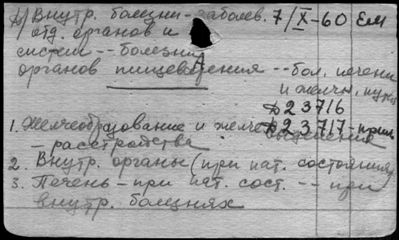 1) Внутр. болезни - заболев. 7/IX-60 Ем
отд. органов и
систем -- болезни
органов пищеварения -- бол. печени
и желчн. пуз.
Д23716
1. Желчеобразование и желчевыделение Д23717-прил.
- расстройства
2. Внутр. органы (при пат. состояниях)
3. Печень - при пат. сост. -- при
внутр. болезнях